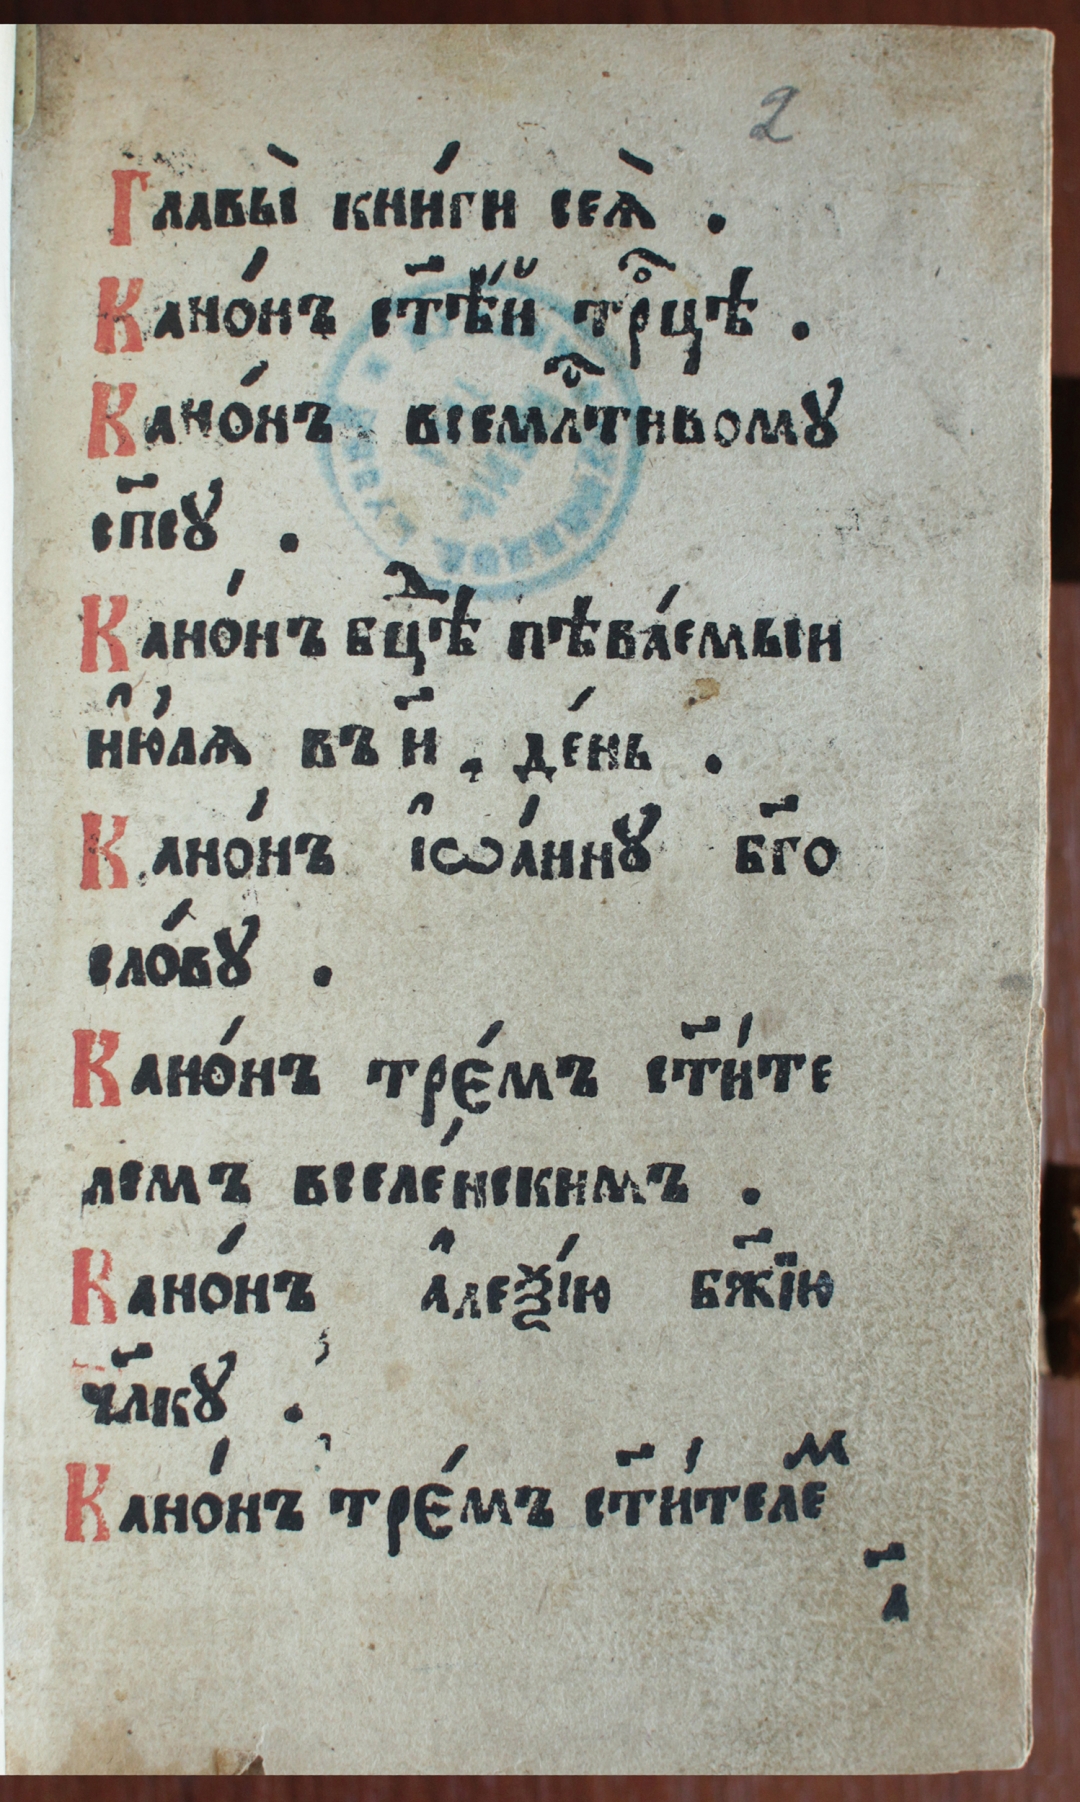 2
Главы̀ кни́ги сеѧ̀ .
Кано́нъ ст҃ѣ́й трⷪ҇цѣ .
Кано́нъ всемлⷭ҇тивомꙋ
сп҃сꙋ .
Кано́нъ бцⷣѣ пѣва́емыи
и҆ю́лѧ въ и҃ , де́нь .
Кано́нъ і҆ѡа́ннꙋ бг҃о
сло́вꙋ .
Кано́нъ трє́мъ ст҃и́те
лемъ вселе́нскимъ .
Кано́нъ а҆леѯі́ю бж҃їю
чл҃кꙋ .
Кано́нъ трє́мъ ст҃и́телеⷨ
а҃